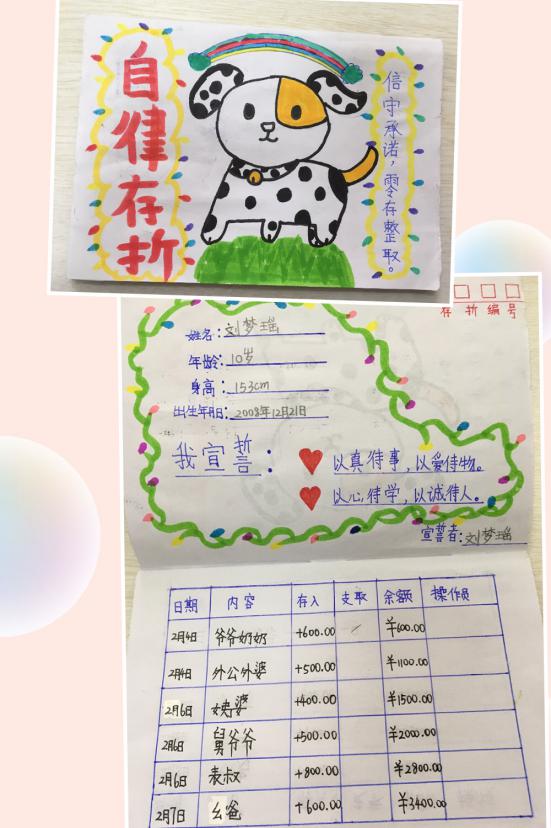 自律存折
信守承诺，零存整取。
存折编号
姓名：刘梦瑶
年龄：10岁
身高：153cm
出生年月日：2008年12月21日
我宣誓：
以真待事，以爱待物。
以心待学，以诚待人。
宣誓者：刘梦瑶
日期 内容 存入 支取 余额 操作员
2月4日 爷爷奶奶 +600.00 ¥600.00
2月4日 外公外婆 +500.00 ¥1100.00
2月6日 姨婆 +400.00 ¥1500.00
2月6日 舅爷爷 +500.00 ¥2000.00
2月6日 表叔 +800.00 ¥2800.00
2月7日 幺爸 +600.00 ¥3400.00